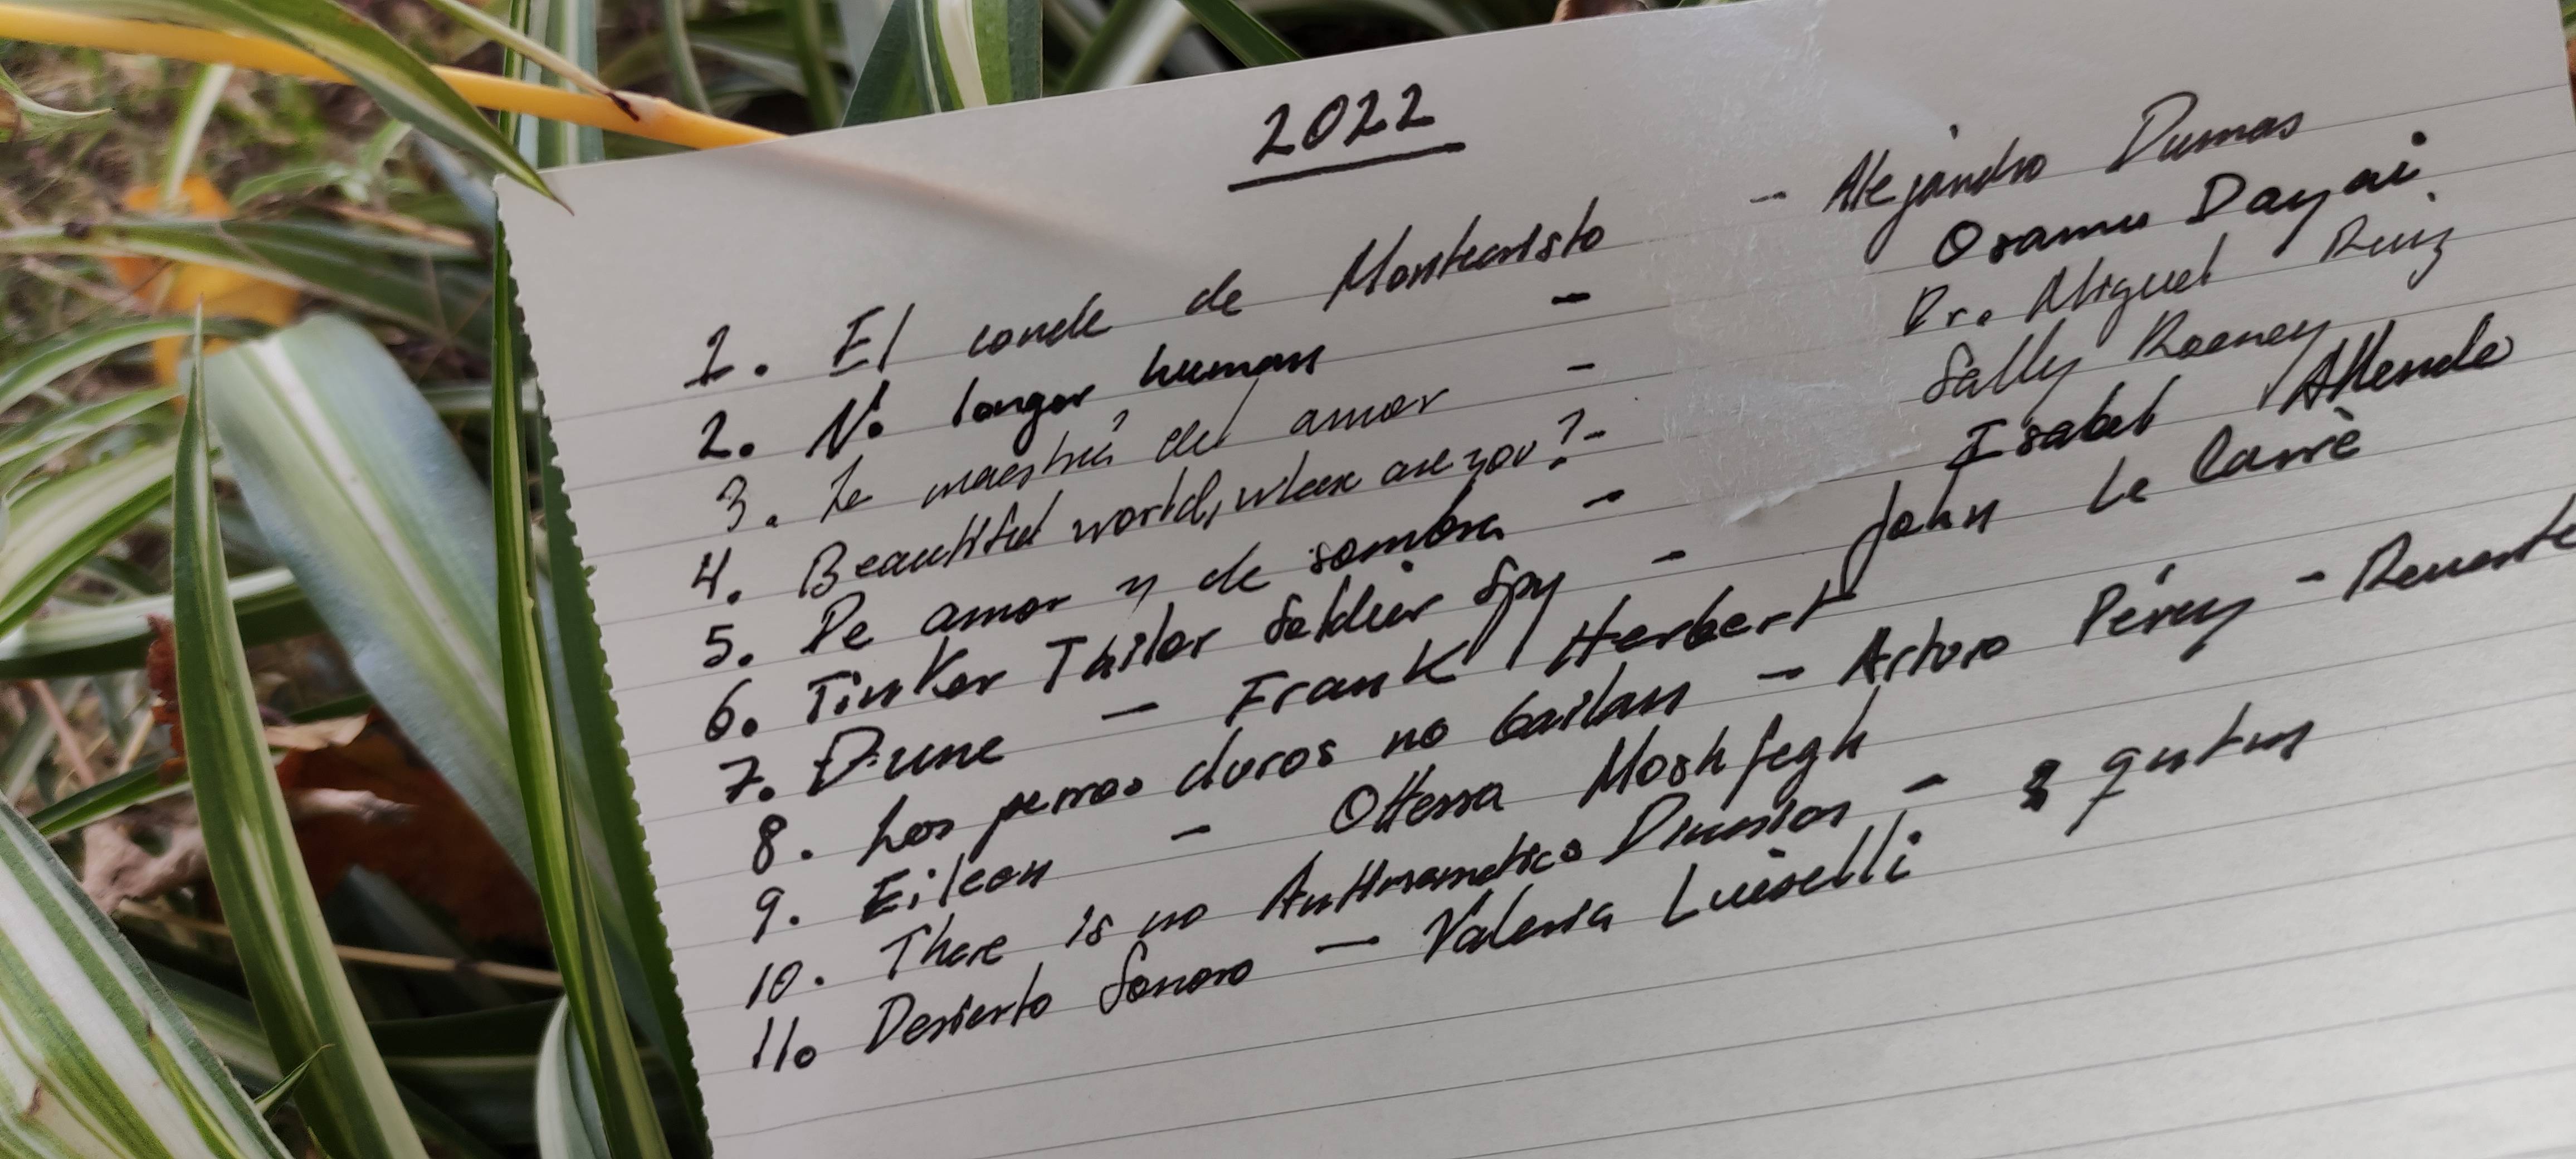 2022
1. El conde de Montecristo - Alejandro Dumas
2. No longer human - Osamu Dazai
3. La maestría del amor - Dr. Miguel Ruiz
4. Beautiful world, where are you? - Sally Rooney
5. De amor y de sombra - Isabel Allende
6. Tinker Tailor Soldier Spy - John Le Carrè
7. Dune - Frank Herbert
8. Los perros duros no bailan - Arturo Pérez - Reverte
9. Eileen - Ottessa Moshfegh
10. There is no Antimemetics Division - qntm
11. Desierto Sonoro - Valeria Luiselli